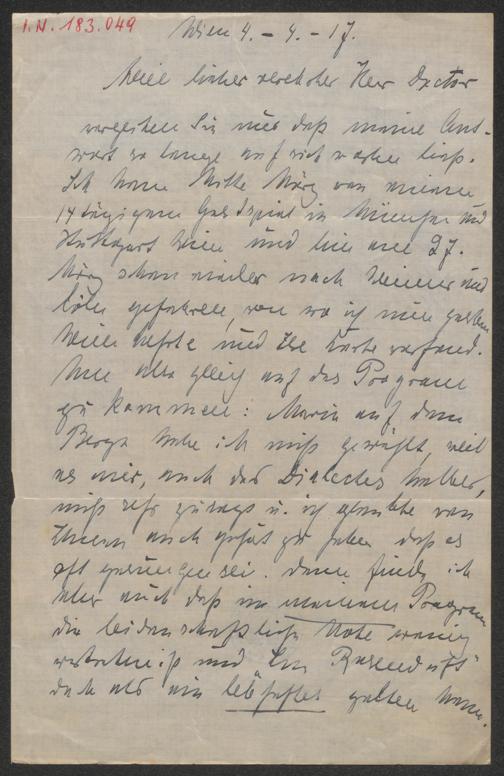 I.N. 183.049
Wien 4. – 4. – 17.
Mein lieber verehrter Herr Doctor
verzeihen Sie mir daß meine Ant-
wort so lange auf sich warten ließ.
Ich kam Mitte März von meinem
14 tägigen Gastspiel in München und
Stuttgart Wien und bin am 27.
März schon wieder nach und
Köln gefahren, von wo ich nun gestern
Wien kehrte und Ihre Karte vorfand.
Nun also gleich auf das Programm
zu kommen: Maria auf dem
Berge habe ich nicht gewählt, weil
es mir, auch des Dialectes halber,
nicht sehr zusagt u. ich glaubte von
Ihnen auch gehört zu haben daß es
oft gesungen sei. Dann finde ich
aber auch daß in meinem Programm
die leidenschaftliche Note wenig
vertreten ist und "Im Rosenduft"
doch als ein lebhaftes gelten kann.